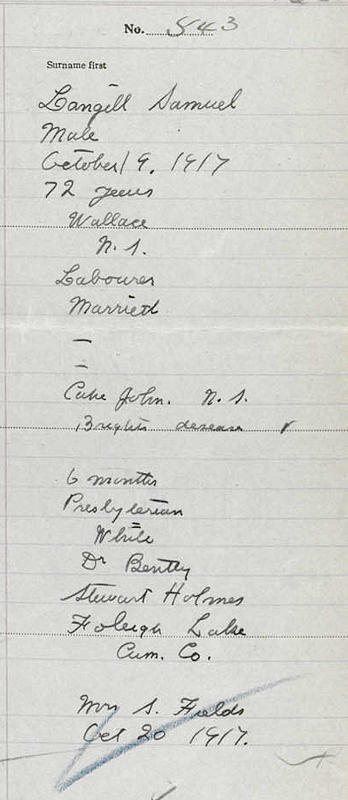 No. 843
Surname first
Langill Samuel
Male
October 19. 1917
72 years
Wallace
N. S.
Labourer
Married
—
—
Cape John. N. S.
Brights desease
6 months
Presbyterian
White
Dr Bently
Stewart Holmes
Foleigh Lake
Cum. Co.
Mrs S. Fields
Oct 20 1917.